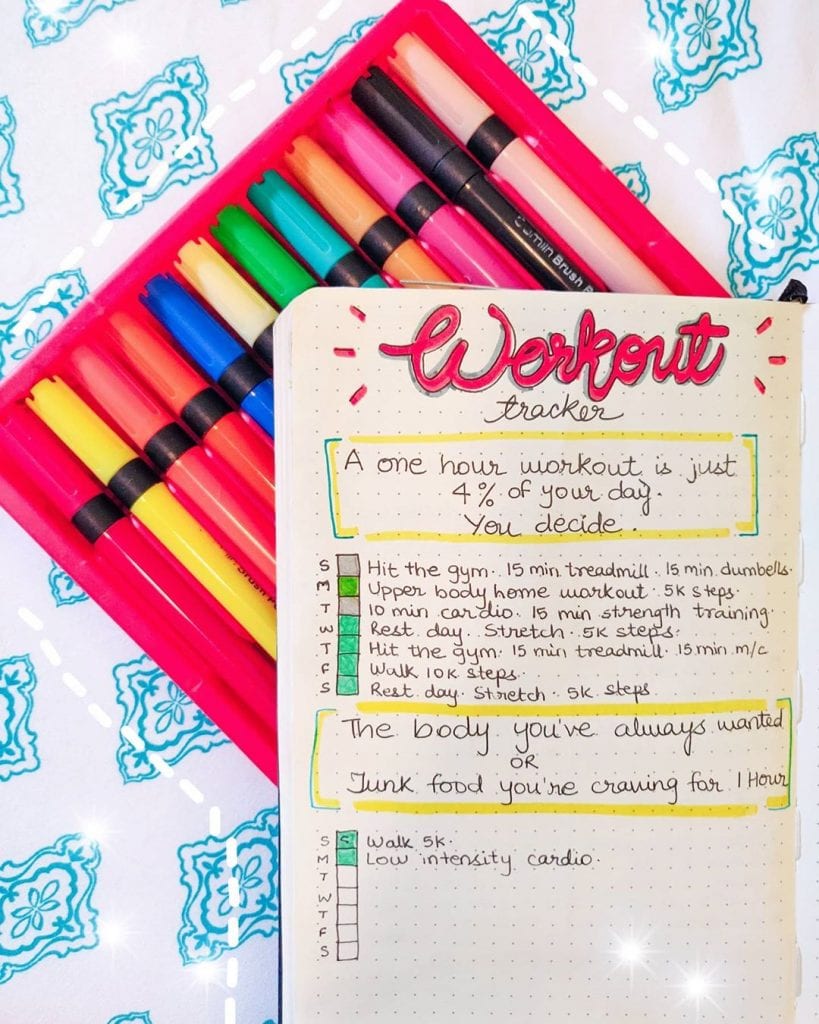 Camlin Brush Pe
lin Brush Pe
Workout
tracker
A one hour workout is just
4% of your day.
You decide.
S Hit the gym. 15 min treadmill. 15 min dumbells.
M Upper body home workout. 5K steps.
T 10 min cardio. 15 min strength training.
W Rest day. Stretch. 5K steps.
T Hit the gym. 15 min treadmill. 15 min m/c
F Walk 10K steps.
S Rest day. Stretch. 5K steps
The body you've always wanted
OR
Junk food you're craving for 1 Hour
S S Walk 5K.
M Low intensity cardio.
T
W
T
F
S